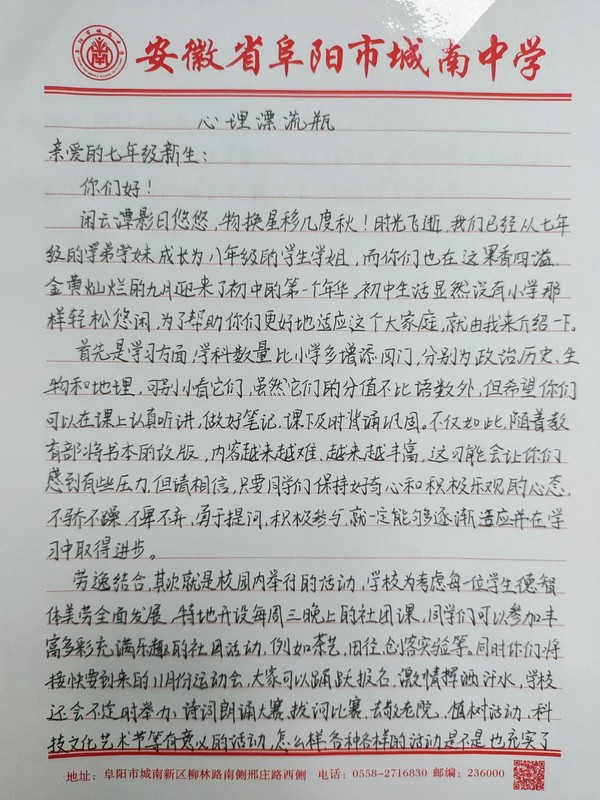 安徽省阜阳市城南中学
心理漂流瓶
亲爱的七年级新生：
你们好！
闲云潭影日悠悠，物换星移几度秋！时光飞逝，我们已经从七年
级的学弟学妹成长为八年级的学生学姐，而你们也在这果香四溢，
金黄灿烂的九月迎来了初中的第一个年华，初中生活显然没有小学那
样轻松悠闲，为了帮助你们更好地适应这个大家庭，就由我来介绍一下。
首先是学习方面，学科数量比小学多增添四门，分别为政治、历史、生
物和地理，可别小看它们，虽然它们的分值不比语数外，但希望你们
可以在课上认真听讲，做好笔记，课下及时背诵巩固。不仅如此，随着教
育部将书本的改版，内容越来越难，越来越丰富，这可能会让你们
感到有些压力，但请相信，只要同学们保持好奇心和积极乐观的心态，
不骄不躁，不卑不弃，勇于提问，积极参与，就一定能够逐渐适应并在学
习中取得进步。
劳逸结合，其次就是校园内举行的活动，学校为考虑每一位学生德智
体美劳全面发展，特地开设每周三晚上的社团课，同学们可以参加丰
富多彩充满乐趣的社团活动，例如茶艺，田径，创客实验等。同时你们将
接快要到来的11月份运动会，大家可以踊跃报名，激情挥洒汗水，学校
还会不定时举办，诗词朗诵大赛，拔河比赛，去敬老院，植树活动，科
技文化艺术节等有意义的活动，怎么样，各种各样的活动是不是也充实了
地址：阜阳市城南新区柳林路南侧邢庄路西侧 电话：0558-2716830 邮编：236000